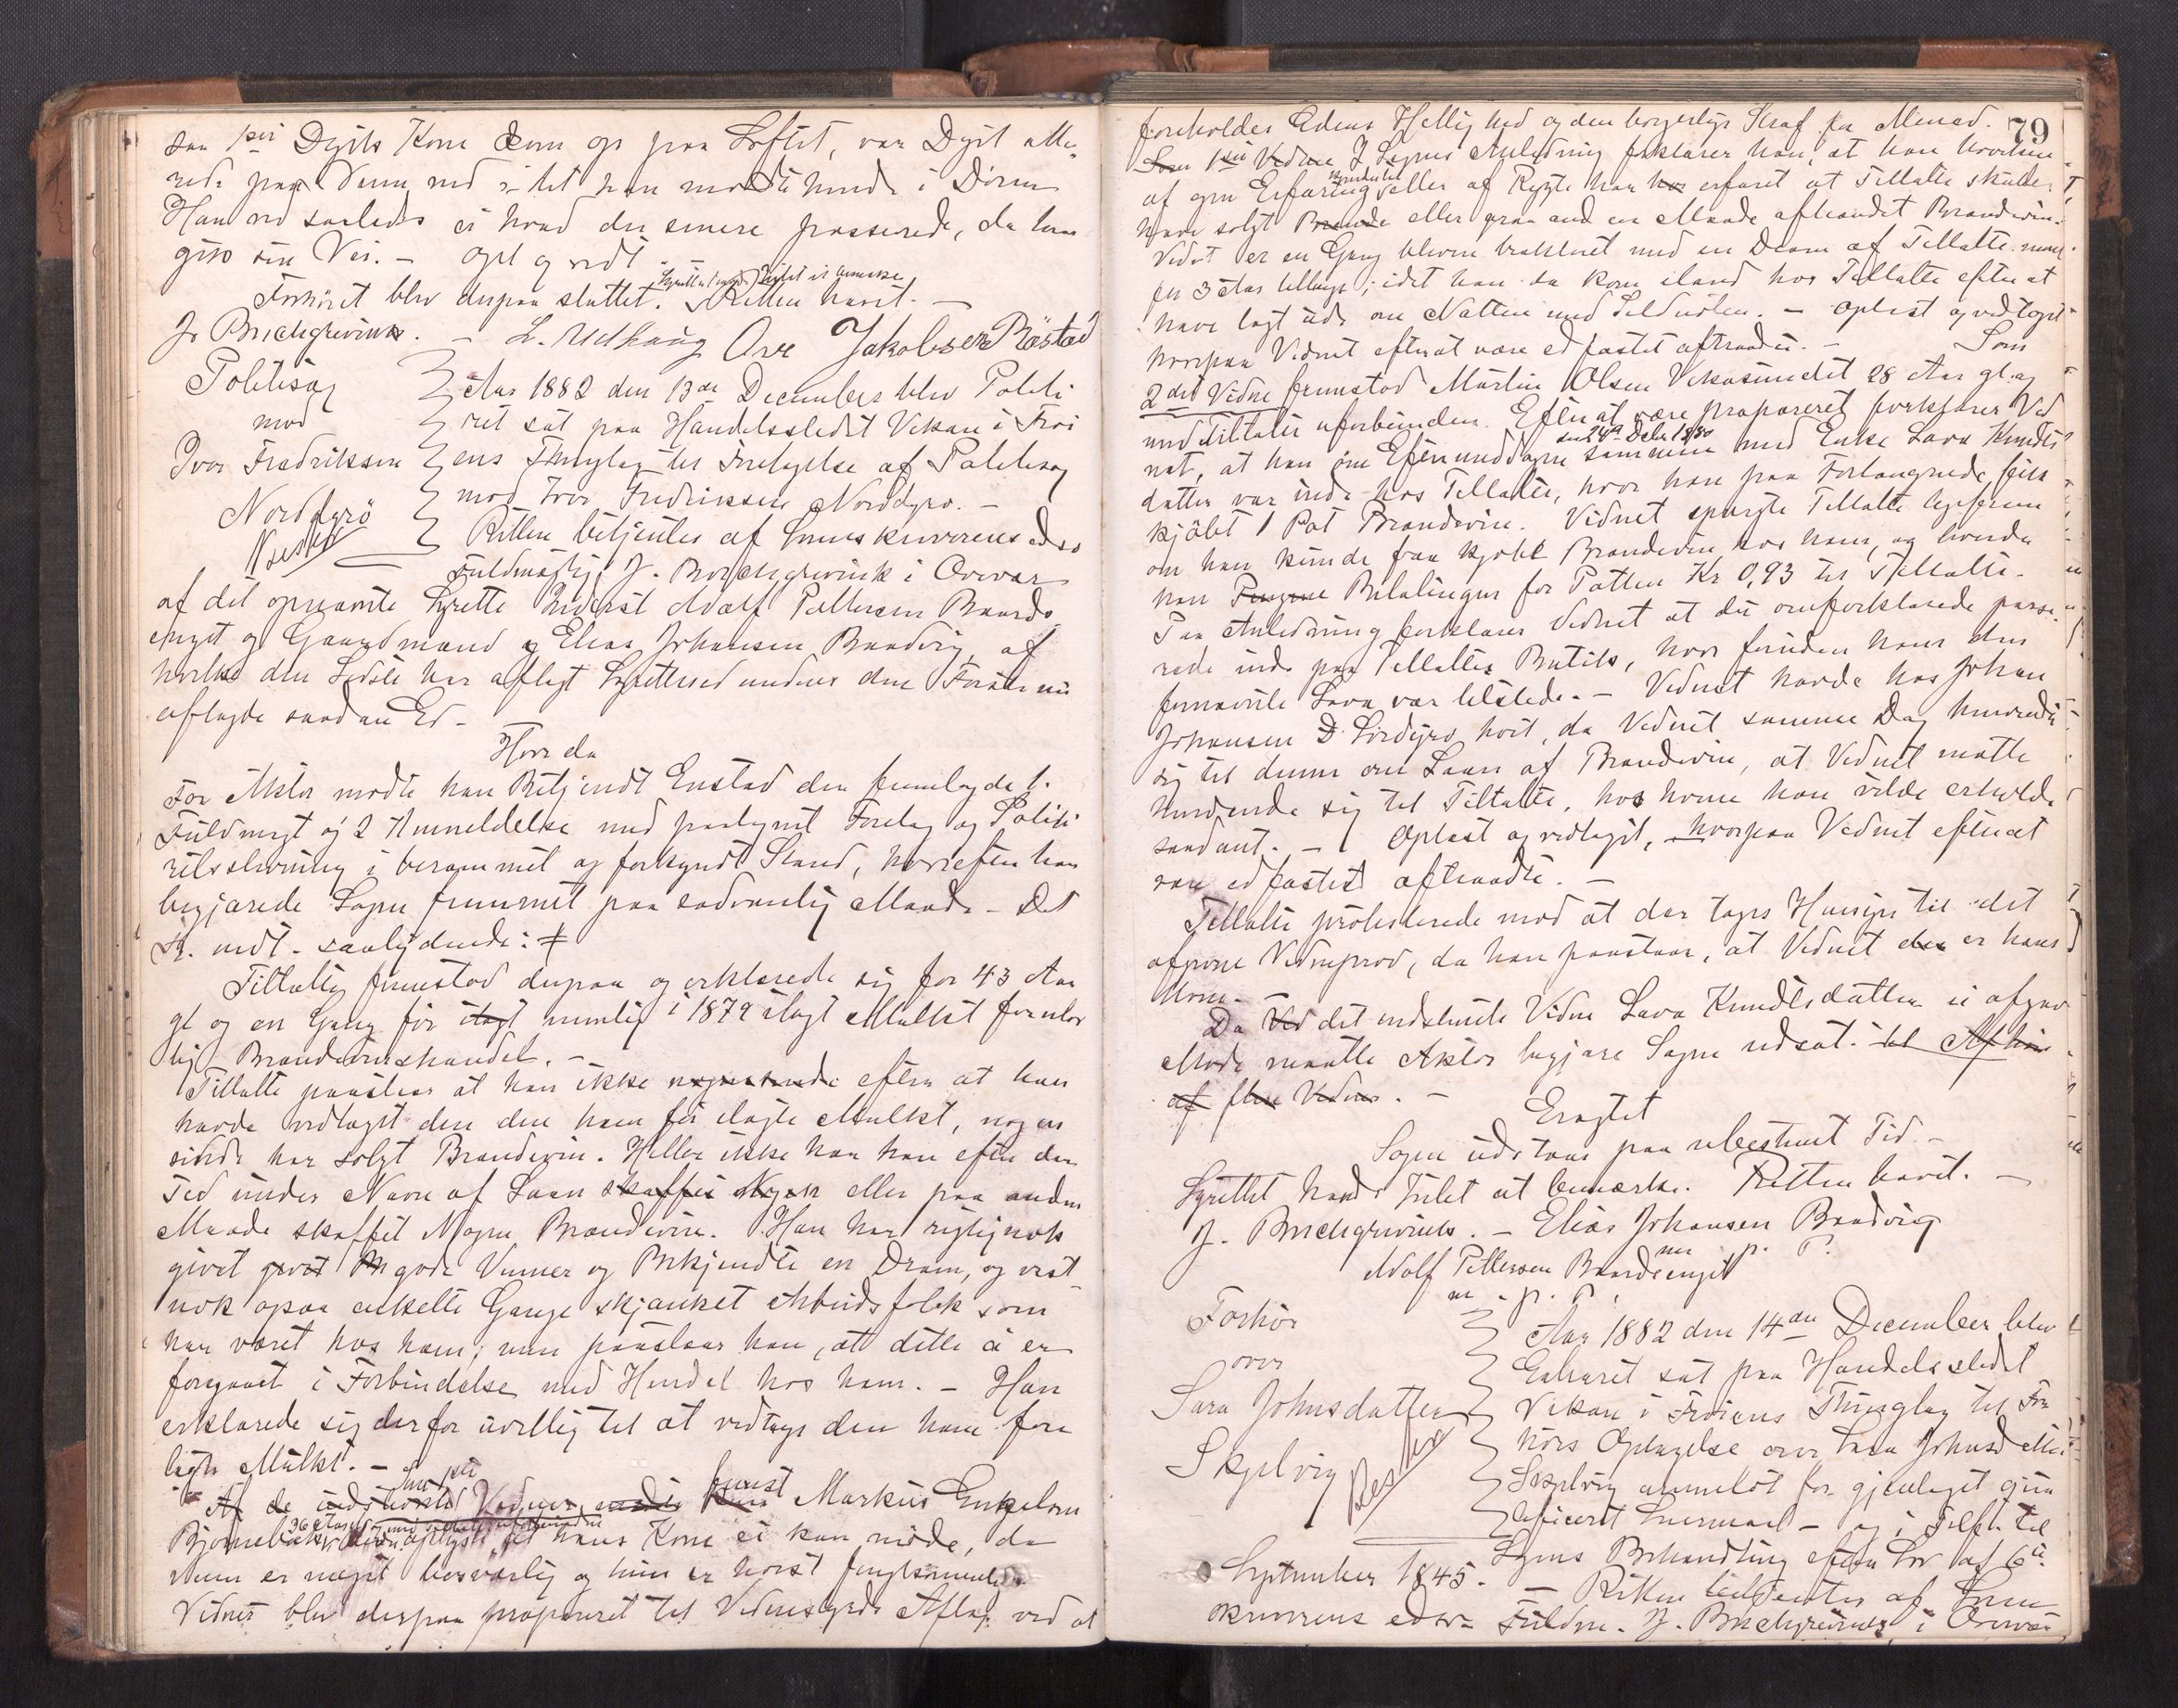 saa Dyits Kone kom op paa Loftet, var Dyit alle
rede paa Veien ned idet han mødte hende i Døren
Han ved saaledes ei hvad der senere passerede, da han
gik sin Vei. — Opl og vedt
Lagrettet havde Intet at bemærke
Forhøret blev derpaa sluttet. Retten hævet. —
J. Borchgrevink. — L. Udhaug Ove Jakobsen Røstad
Politisag
mod
Ivar Fredriksen
Norddyrø
Næste
Aar 1882 den 13de December blev Politi
ret sat paa Handelsstedet Vikan i Frøi
ens Thinglag til Foretagelse af Politisag
mod Ivar Fredriksen Norddyrø. —
Retten betjentes af Sorenskriverens edsv
Fuldmægtig J. Borchgrevink i Overvær
af det opnævnte Lagrette Inderst Adolf Pettersen Baards
enget og Gaardmand Elias Johansen Baadvig, af
hvilke den Sidste har aflagt Lagretteed medens den Første nu
aflagde saadan Ed —
Hvor da
For Aktor mødte han Betjendt Enstad der fremlagde 1.
Fuldmagt og 2 Anmeldelse med paategnet Forelæg og Politi
retsstevning i berammet og forkyndt Stand, hvorefter han
begjærede Sagen fremmet paa sædvanlig Maade — Det
fr. vedt. saalydende: ǂ
Tiltalte fremstod derpaa og erklærede sig for 43 Aar
gl og en Gang før ilagt nemlig i 1879 ilagt Mulkt for ulov
lig Brændevinshandel. —
Tiltalte paastaar at han ikke efter at han
havde vedtaget den den ham før ilagte Mulkt, nogen
sinde har solgt Brændevin. Heller ikke har han efter den
Tid under Navn af Laan skaffet Nogen eller paa anden
Maade skaffet Nogen Brændevin. Han har rigtignok
givet givet gode Venner og Bekjendte en Dram, og vist
nok ogsaa enkelte Gange skjænket Arbeidsfolk som
har været hos ham; men paastaar han, at dette ei er
foregaaet i Forbindelse med Handel hos ham. — Han
erklærede sig derfor uvillig til at vedtage den ham fore
lagte Mulkt. —
Af de indstevnte Vidner mødte først Markus Enge
Bjørnebak oplyste at hans Kone ei kan møde, da
Veien er meget besværlig og hun er høist frugtsommelig
Vidnet blev derpaa præpareret til Vidneseds Aflæg. ved at
79
foreholdes Edens Hellighed og den borgerlige Straf for Mened.
Som 1ste Vidne I Sagens Anledning forklarer han, at han hverken
af egen Erfaring eller af Rygte har erfaret at Tiltalte skulde
have solgt Brænde eller paa anden Maade afhændet Brændevin.
Vidnet er en Gang bleven trakteret med en Dram af Tiltalte
for 3 Aar tilbage; idet han da kom iland hos Tiltalte efter at
have lagt ude om Natten med Sildnoten. — Oplæst og vedtaget
hvorpaa Vidnet efterat være edfæstet aftraadte. — Som
2det Vidne fremstod Martin Olsen Vikasundet 28 Aar gl. og
med Tiltalte uforbunden. Efterat være præpareret forklarer Vid
net, at han om Eftermiddagen den 24de Debr 1880 sammen med Enke Lava Knuds
datter var inde hos Tiltalte, hvor han paa Forlangende fik
kjøbt 1 Pot Brændevin. Vidnet spurgte Tiltalte ligefrem
om han kunde faa kjøbt Brændevin hos ham, og leverede
han Betalingen for Potten Kr 0,93 til Tiltalte.
Paa Anledning forklarer Vidnet at det omforklarede passe
rede inde paa Tiltaltes Butik, hvor foruden ham den
fornævnte Lava var tilstede. — Vidnet havde hos Johan
Johansen Sørdyrø hørt, da Vidnet samme Dag henvendte
sig til denne om Laan af Brændevin, at Vidnet maatte
henvende sig til Tiltalte, hos hvem han vilde erholde
saadant. — Oplæst og vedtaget, hvorpaa Vidnet efterat
være edfæstet aftraadte. —
Tiltalte protesterede mod at der tages Hensyn til det
afgivne Vidneprov, da han paastaar, at Vidnet er hans
Uven.
Da Ved det indstevnte Vidne Lava Knudsdatter ei afgav
Møde maatte Aktor begjære Sagen udsat. til Afhør
af flere Vidner. —
Eragtet
Sagen udstaar paa ubestemt Tid. —
Lagrettet havde Intet at bemærke. Retten hævet. —
J. Borchgrevink. — Elias Johansen Baadvig
Adolf Pettersen Baardsenget m. p. P.
m. p. P.
Forhør
over
Sara Johnsdatter
Skjelvig
Næste
Aar 1882 den 14de December blev
Extraret sat paa Handelsstedet
Vikan i Frøiens Thinglag til For
hørs Optagelse over Sara Johnsdatter
Skjelvig anmeldt for gjentaget qvali
ficeret Leiermaal — og i Tilfælde til
Sagens Behandling efter Lov af 6te
September 1845. — Retten betjentes af Soren
skriverens edsv. Fuldm. J. Borchgrevink i Overvær